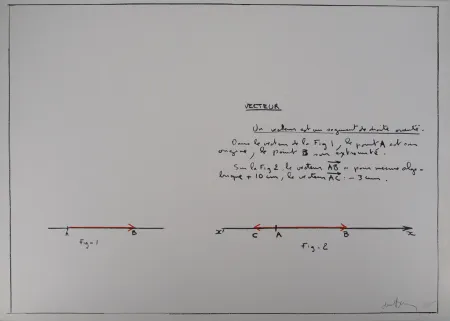 VECTEUR
Un vecteur est un segment de droite orienté.
Dans le vecteur de la Fig 1, le point A est son
origine, le point B son extrémité.
Sur la Fig 2, le vecteur AB a pour mesure algé-
brique + 10 cm, le vecteur AC : - 3 cm.
A B
Fig-1
x' C A B x
Fig-2